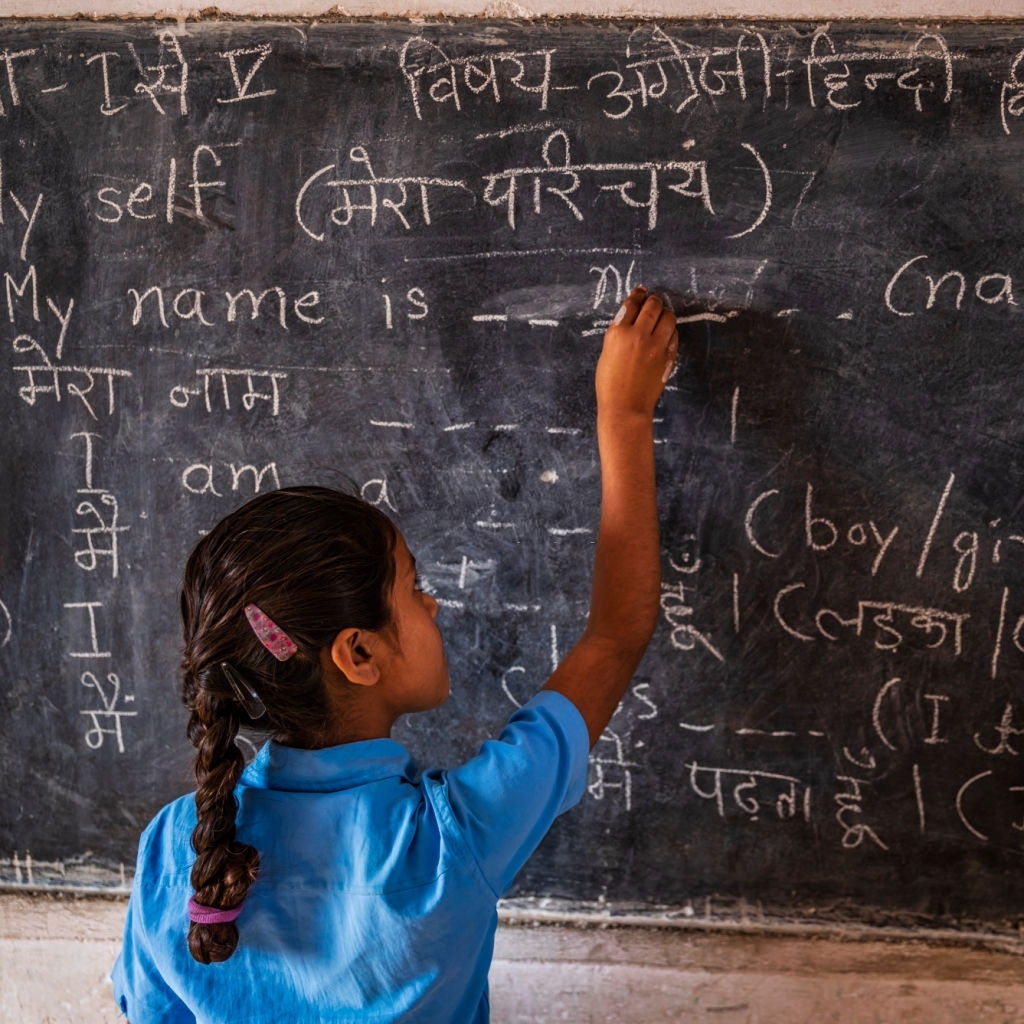 - I से V विषय - अंग्रेजी - हिन्दी
My self (मेरा परिचय)
My name is _ _ _ _ _ (na
मेरा नाम _ _ _ _ _ |
I am a _ _ (boy/gi
मैं _ _ हूँ | (लड़का /
I _ _ _ (I
मैं में पढ़ता हूँ | (